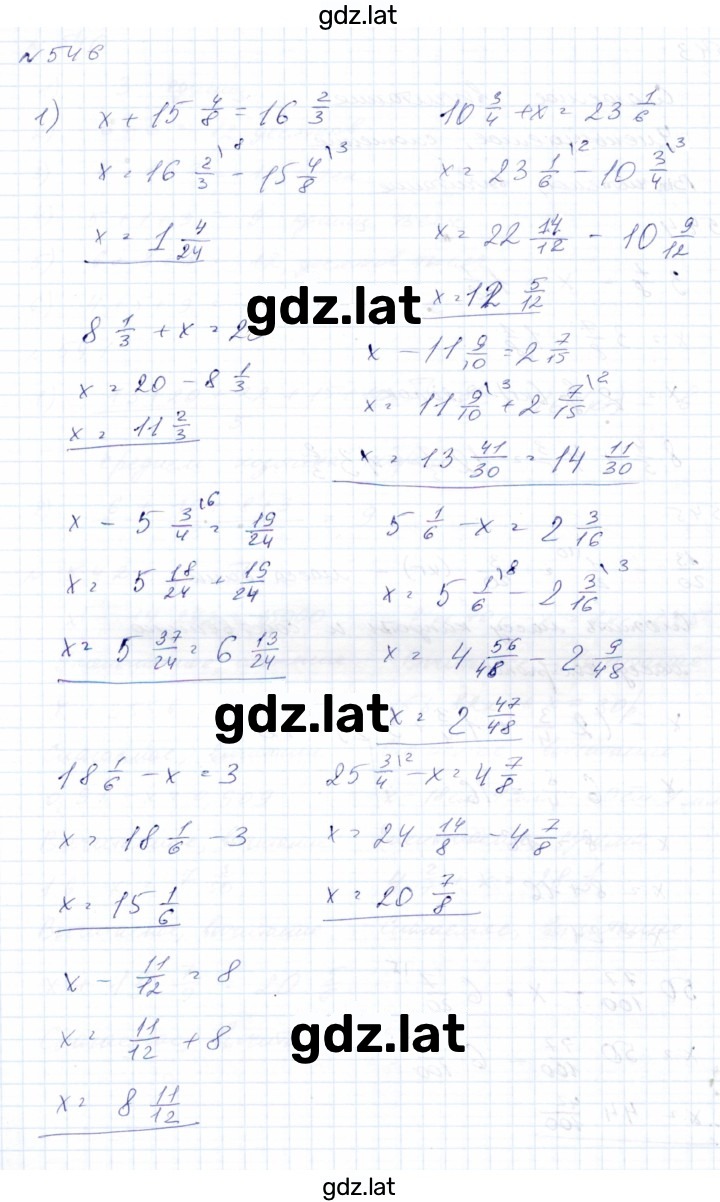 gdz.lat
№546
1) x + 15 4/8 = 16 2/3
x = 16 2/3 \8 - 15 4/8 \3
x = 1 4/24
10 3/4 + x = 23 1/6
x = 23 1/6 \2 - 10 3/4 \3
x = 22 14/12 - 10 9/12
x = 12 5/12
gdz.lat
8 1/3 + x = 20
x = 20 - 8 1/3
x = 11 2/3
x - 11 9/10 = 2 7/15
x = 11 9/10 \3 + 2 7/15 \2
x = 13 41/30 = 14 11/30
x - 5 3/4 \6 = 19/24
x = 5 18/24 + 19/24
x = 5 37/24 = 6 13/24
5 1/6 - x = 2 3/16
x = 5 1/6 \8 - 2 3/16 \3
x = 4 56/48 - 2 9/48
x = 2 47/48
gdz.lat
18 1/6 - x = 3
x = 18 1/6 - 3
x = 15 1/6
25 3/4 \2 - x = 4 7/8
x = 24 14/8 - 4 7/8
x = 20 7/8
x - 11/12 = 8
x = 11/12 + 8
x = 8 11/12
gdz.lat
gdz.lat